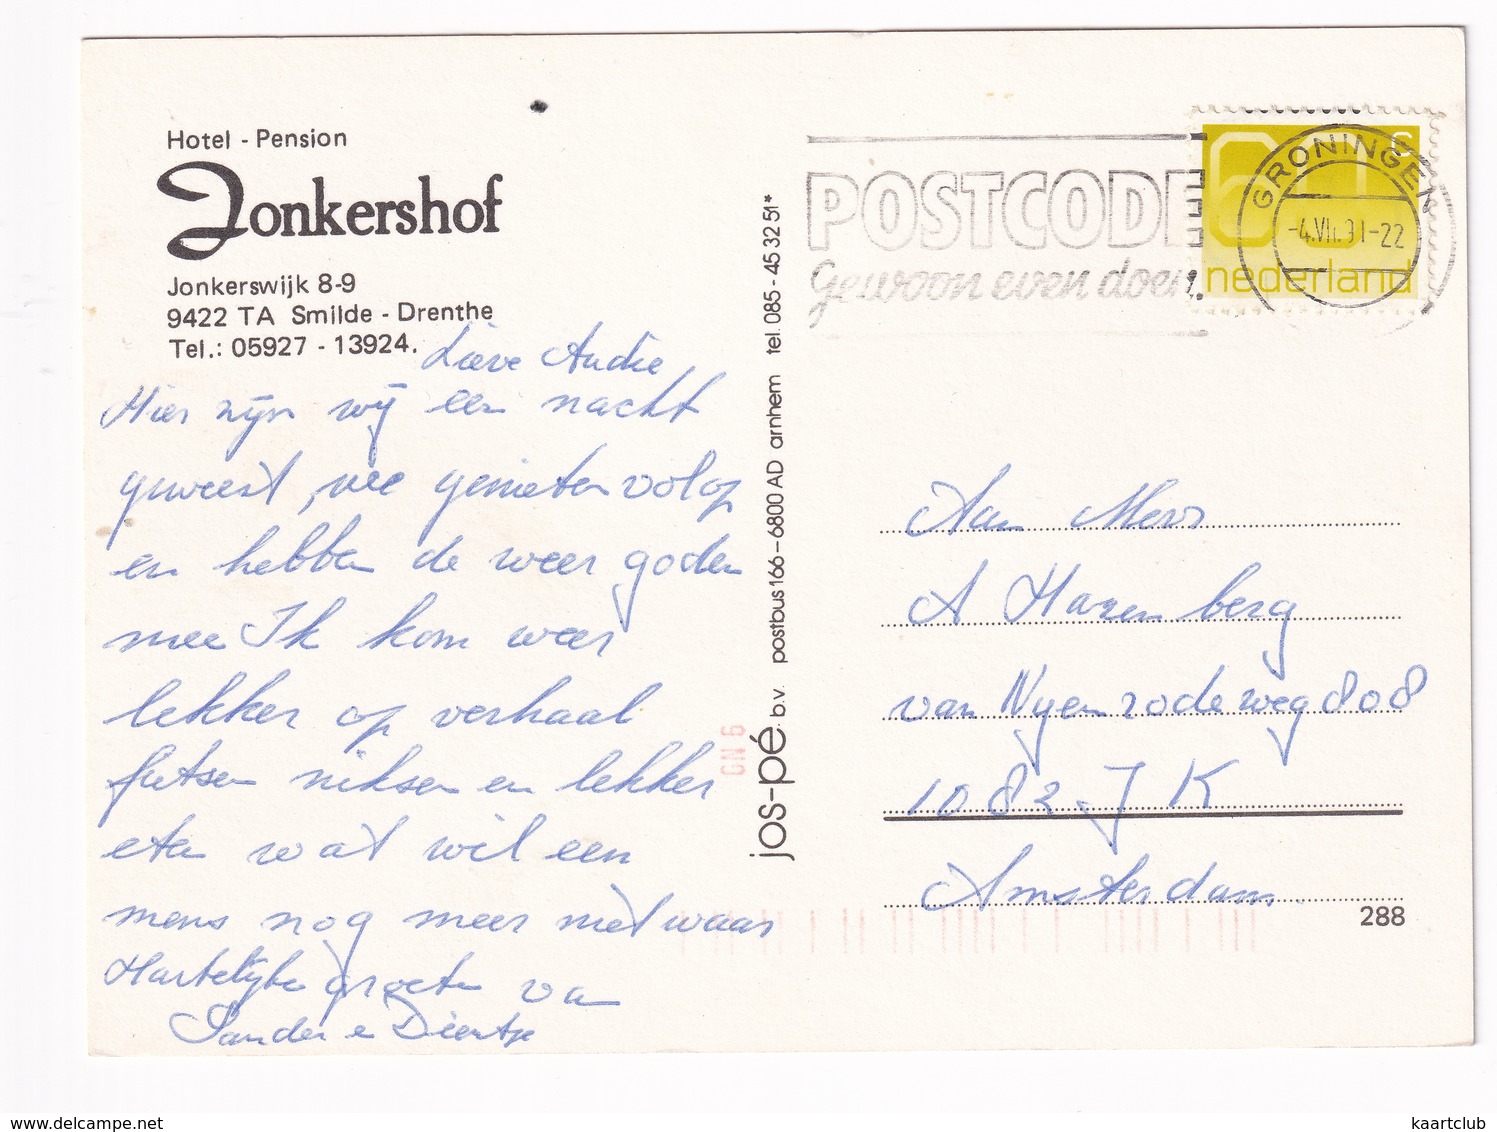 Hotel - Pension
Jonkershof
Jonkerswijk 8-9
9422 TA Smilde - Drenthe
Tel.: 05927 - 13924.
Lieve Audie,
Hier zijn wij een nacht
geweest, we genieten volop
en hebben de weer goden
mee Ik kom weer
lekker op verhaal
fietsen niksen en lekker
eten wat wil een
mens nog meer niet waar
Hartelijke groeten van
Sander en Dientje
jos-pé b.v. postbus 166 - 6800 AD arnhem tel. 085 - 45 32 51*
GN 6
POSTCODE
Gewoon even doen.
GRONINGEN
-4.VII.91-22
60 c
nederland
Aan Mevr
A Hazenberg
van Nyenrodeweg 808
1082 JK
Amsterdam.
288
delcampe.net
kaartclub